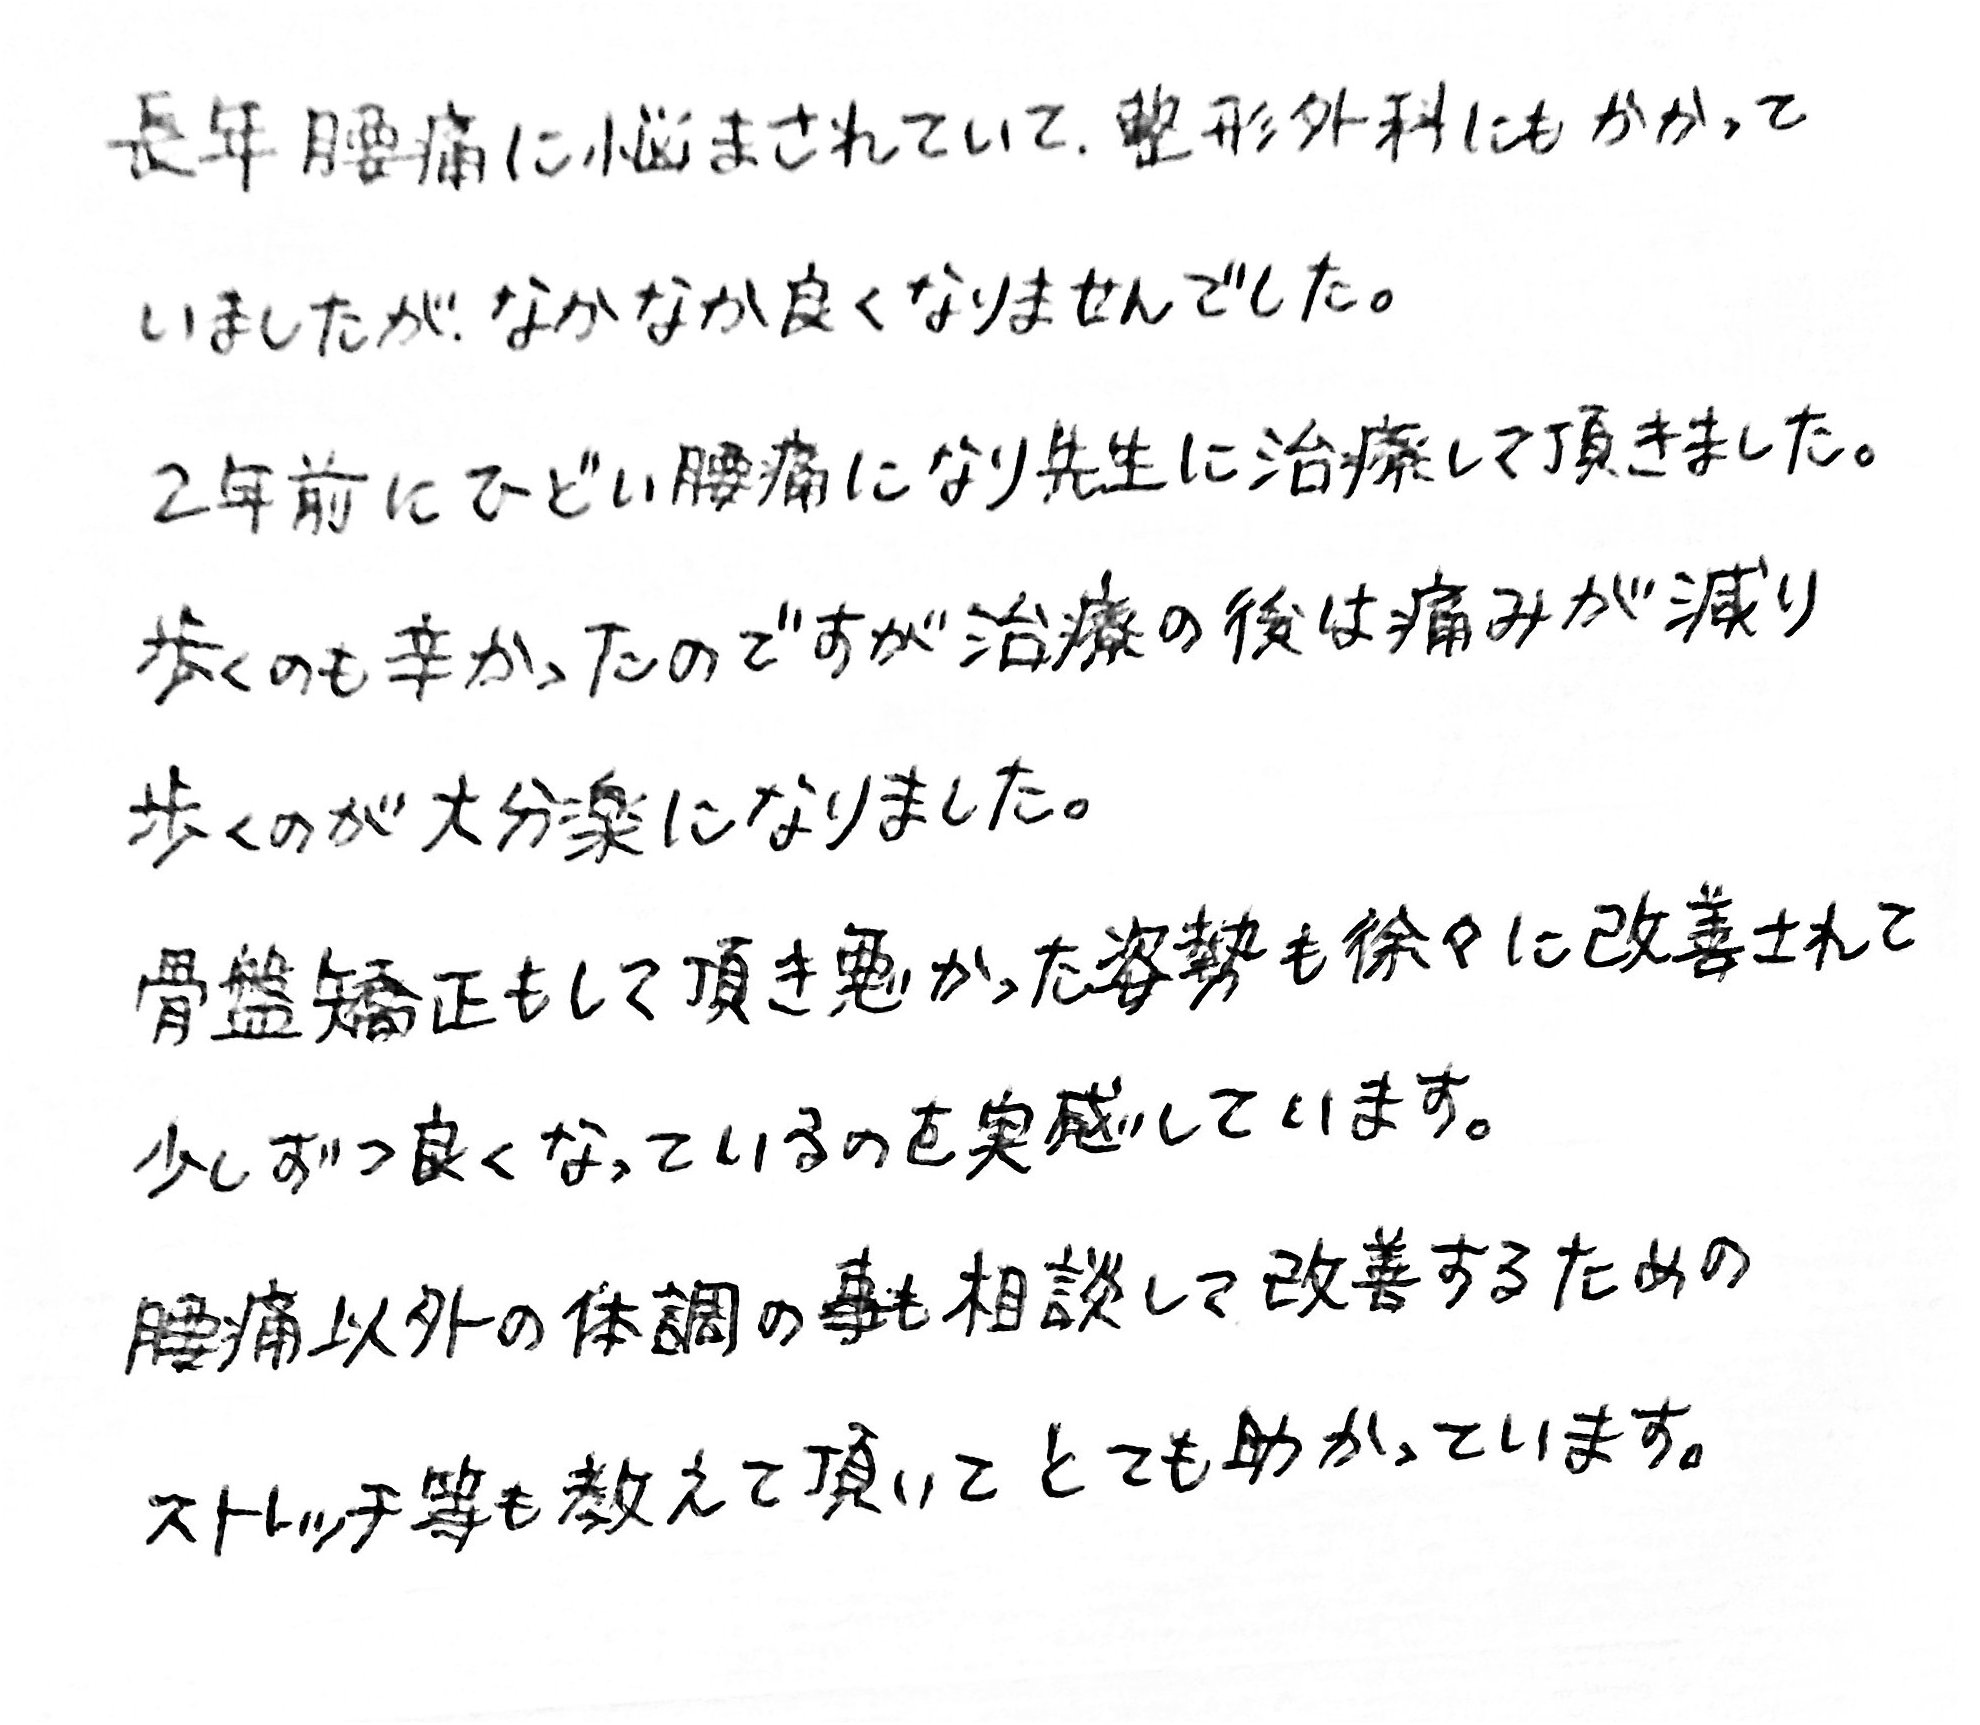 長年腰痛に悩まされていて、整形外科にもかかって
いましたが、なかなか良くなりませんでした。
2年前にひどい腰痛になり先生に治療して頂きました。
歩くのも辛かったのですが治療の後は痛みが減り
歩くのが大分楽になりました。
骨盤矯正もして頂き悪かった姿勢も徐々に改善されて
少しずつ良くなっているのを実感しています。
腰痛以外の体調の事も相談して改善するための
ストレッチ等も教えて頂いてとても助かっています。